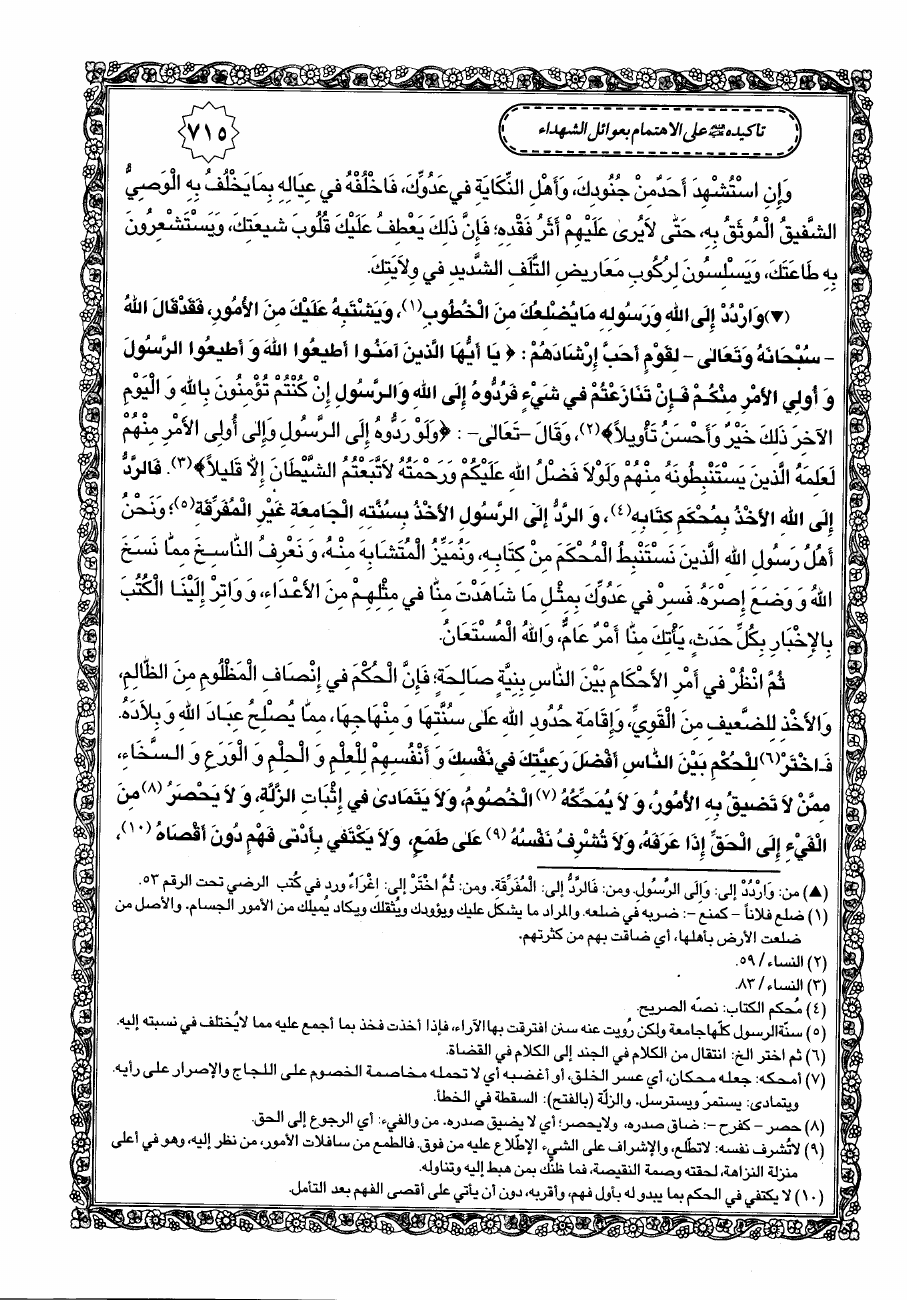 تأكيده عليه السلام على الاهتمام بعوائل الشهداء
٧١٥
وَإِن اسْتُشْهِدَ أَحَدٌ مِنْ جُنُودِكَ، وَأَهْلِ النِّكَايَةِ في عَدُوِّكَ، فَاخْلُفْهُ في عِيَالِهِ بِمَا يَخْلُفُ بِهِ الْوَصِيُّ
الشَّفيقُ الْمُوثَقُ بِهِ، حَتّٰى لاَ يُرىٰ عَلَيْهِمْ أَثَرُ فَقْدِهِ؛ فَإِنَّ ذَلِكَ يَعْطِفُ عَلَيْكَ قُلُوبَ شيعَتِكَ، وَيَسْتَشْعِرُونَ
بِهِ طَاعَتَكَ، وَيَسْلِسُونَ لِرُكُوبِ مَعَاريضِ التَّلَفِ الشَّديدِ في وِلاَيَتِكَ.
(▼)وَارْدُدْ إِلَى اللهِ وَرَسُولِهِ مَا يُضْلِعُكَ مِنَ الْخُطُوبِ(١)، وَيَشْتَبِهُ عَلَيْكَ مِنَ الأُمُورِ، فَقَدْ قَالَ اللهُ
- سُبْحَانَهُ وَتَعَالى - لِقَوْمٍ أَحَبَّ إِرْشَادَهُمْ: ﴿ يَا أَيُّهَا الَّذينَ آمَنُوا أَطيعُوا اللهَ وَ أَطيعُوا الرَّسُولَ
وَ أُولِي الأَمْرِ مِنْكُمْ فَإِنْ تَنَازَعْتُمْ في شَيْءٍ فَرُدُّوهُ إِلَى اللهِ وَالرَّسُولِ إِنْ كُنْتُمْ تُؤْمِنُونَ بِاللهِ وَ الْيَوْمِ
الآخِرِ ذَلِكَ خَيْرٌ وَأَحْسَنُ تَأْويلاً﴾(٢)، وَقَالَ -تَعَالى-: ﴿وَلَوْ رَدُّوهُ إِلَى الرَّسُولِ وَإِلى أُولِي الأَمْرِ مِنْهُمْ
لَعَلِمَهُ الَّذينَ يَسْتَنْبِطُونَهُ مِنْهُمْ وَلَوْلاَ فَضْلُ اللهِ عَلَيْكُمْ وَرَحْمَتُهُ لاَتَّبَعْتُمُ الشَّيْطَانَ إِلاَّ قَليلاً﴾(٣). فَالرَّدُّ
إِلَى اللهِ الأَخْذُ بِمُحْكَمِ كِتَابِهِ(٤)، وَ الرَّدُّ إِلَى الرَّسُولِ الأَخْذُ بِسُنَّتِهِ الْجَامِعَةِ غَيْرِ الْمُفَرِّقَةِ(٥)؛ وَنَحْنُ
أَهْلُ رَسُولِ اللهِ الَّذينَ نَسْتَنْبِطُ الْمُحْكَمَ مِنْ كِتَابِهِ، وَنُمَيِّزُ الْمُتَشَابِهَ مِنْهُ، وَ نَعْرِفُ النَّاسِخَ مِمَّا نَسَخَ
اللهُ وَ وَضَعَ إِصْرَهُ. فَسِرْ في عَدُوِّكَ بِمِثْلِ مَا شَاهَدْتَ مِنَّا في مِثْلِهِمْ مِنَ الأَعْدَاءِ، وَ وَاتِرْ إِلَيْنَا الْكُتُبَ
بِالإِخْبَارِ بِكُلِّ حَدَثٍ، يَأْتِكَ مِنَّا أَمْرٌ عَامٌّ، وَاللهُ الْمُسْتَعَانُ.
ثُمَّ انْظُرْ في أَمْرِ الأَحْكَامِ بَيْنَ النَّاسِ بِنِيَّةٍ صَالِحَةٍ؛ فَإِنَّ الْحُكْمَ في إِنْصَافِ الْمَظْلُومِ مِنَ الظَّالِمِ،
وَالأَخْذِ لِلضَّعيفِ مِنَ الْقَوِيِّ، وَإِقَامَةِ حُدُودِ اللهِ عَلى سُنَّتِهَا وَ مِنْهَاجِهَا، مِمَّا يُصْلِحُ عِبَادَ اللهِ وَ بِلاَدَهُ.
فَاخْتَرْ(٦) لِلْحُكْمِ بَيْنَ النَّاسِ أَفْضَلَ رَعِيَّتِكَ في نَفْسِكَ وَ أَنْفُسِهِمْ لِلْعِلْمِ وَ الْحِلْمِ وَ الْوَرَعِ وَ السَّخَاءِ،
مِمَّنْ لاَ تَضيقُ بِهِ الأُمُورُ، وَ لاَ يُمْحِكُهُ(٧) الْخُصُومُ، وَلاَ يَتَمَادى في إِثْبَاتِ الزَّلَّةِ، وَ لاَ يَحْصَرُ(٨) مِنَ
الْفَيْءِ إِلَى الْحَقِّ إِذَا عَرَفَهُ، وَلاَ تُشْرِفُ نَفْسُهُ(٩) عَلى طَمَعٍ، وَلاَ يَكْتَفي بِأَدْنى فَهْمٍ دُونَ أَقْصَاهُ(١٠)،
(▲) من: وَارْدُدْ إلى: وَإِلَى الرَّسُولِ. ومن: فَالرَّدُّ إلى: الْمُفَرِّقَةِ. ومن: ثُمَّ اخْتَرْ إلى: إِغْرَاءٌ ورد في كُتب الرضي تحت الرقم ٥٣.
(١) ضلع فلاناً - كمنع -: ضربه في ضلعه. والمراد ما يشكل عليك ويؤودك ويُثقلك ويكاد يُميلك من الأمور الجسام. والأصل من
ضلعت الأرض بأهلها، أي ضاقت بهم من كثرتهم.
(٢) النساء / ٥٩.
(٣) النساء / ٨٣.
(٤) مُحكم الكتاب: نصّه الصريح.
(٥) سنّة الرسول كلّها جامعة ولكن رُويت عنه سنن افترقت بها الآراء، فإذا أخذت فخذ بما أجمع عليه مما لا يُختلف في نسبته إليه.
(٦) ثم اختر الخ: انتقال من الكلام في الجند إلى الكلام في القضاة.
(٧) أمحكه: جعله محكان، أي عسر الخلق، أو أغضبه أي لا تحمله مخاصمة الخصوم على اللجاج والإصرار على رأيه.
ويتمادى: يستمرّ ويسترسل. والزلّة (بالفتح): السقطة في الخطأ.
(٨) حصر - كفرح -: ضاق صدره، ولا يحصر؛ أي لا يضيق صدره. من والفيء: أي الرجوع إلى الحق.
(٩) لا تُشرف نفسه: لا تطّلع، والإشراف على الشيء الإطّلاع عليه من فوق. فالطمع من سافلات الأمور، من نظر إليه، وهو في أعلى
منزلة النزاهة، لحقته وصمة النقيصة، فما ظنّك بمن هبط إليه وتناوله.
(١٠) لا يكتفي في الحكم بما يبدو له بأول فهم، وأقربه، دون أن يأتي على أقصى الفهم بعد التأمل.